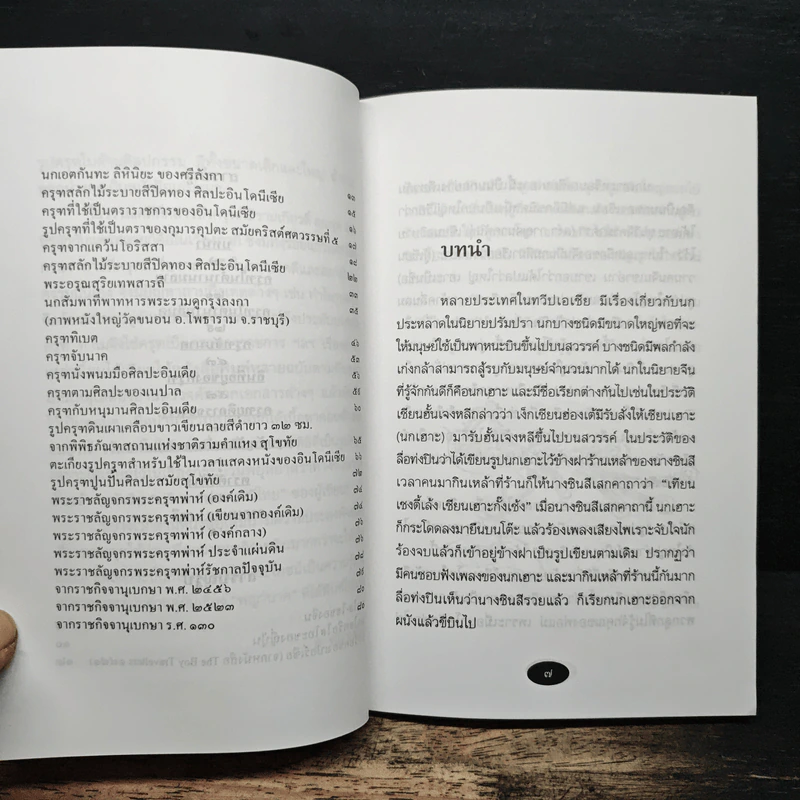 นกเอตกันทะ ลิหินิยะ ของศรีลังกา
ครุฑสลักไม้ระบายสีปิดทอง ศิลปะอินโดนีเซีย ๑๓
ครุฑที่ใช้เป็นตราราชการของอินโดนีเซีย ๑๕
รูปครุฑที่ใช้เป็นตราของกุมารคุปตะ สมัยคริสต์ศตวรรษที่ ๕ ๑๖
ครุฑจากแคว้นโอริสสา ๑๗
ครุฑสลักไม้ระบายสีปิดทอง ศิลปะอินโดนีเซีย ๑๘
พระอรุณสุริยเทพสารถี ๒๒
นกสัมพาทีพาทหารพระรามดูกรุงลงกา ๓๓
(ภาพหนังใหญ่วัดขนอน อ.โพธาราม จ.ราชบุรี) ๓๕
ครุฑทิเบต ๔๖
ครุฑจับนาค ๕๓
ครุฑนั่งพนมมือศิลปะอินเดีย ๕๖
ครุฑตามศิลปะของเนปาล ๕๙
ครุฑกับหนุมานศิลปะอินเดีย ๖๐
รูปครุฑดินเผาเคลือบขาวเขียนลายสีดำยาว ๓๒ ซม.
จากพิพิธภัณฑสถานแห่งชาติรามคำแหง สุโขทัย ๖๕
ตะเกียงรูปครุฑสำหรับใช้ในเวลาแสดงหนังของอินโดนีเซีย ๖๖
รูปครุฑปูนปั้นศิลปะสมัยสุโขทัย ๗๒
พระราชลัญจกรพระครุฑพ่าห์ (องค์เดิม) ๗๔
พระราชลัญจกรพระครุฑพ่าห์ (เขียนจากองค์เดิม) ๗๔
พระราชลัญจกรพระครุฑพ่าห์ (องค์กลาง) ๗๕
พระราชลัญจกรพระครุฑพ่าห์ ประจำแผ่นดิน ๗๘
พระราชลัญจกรพระครุฑพ่าห์รัชกาลปัจจุบัน ๗๘
จากราชกิจจานุเบกษา พ.ศ. ๒๔๕๖ ๘๖
จากราชกิจจานุเบกษา พ.ศ. ๒๕๒๓ ๘๖
จากราชกิจจานุเบกษา ร.ศ. ๑๓๐
บทนำ
หลายประเทศในทวีปเอเชีย มีเรื่องเกี่ยวกับนก
ประหลาดในนิยายปรัมปรา นกบางชนิดมีขนาดใหญ่พอที่จะ
ให้มนุษย์ใช้เป็นพาหนะบินขึ้นไปบนสวรรค์ บางชนิดมีพลกำลัง
เก่งกล้าสามารถสู้รบกับมนุษย์จำนวนมากได้ นกในนิยายจีน
ที่รู้จักกันดีก็คือนกเฮาะ และมีชื่อเรียกต่างกันไปเช่นในประวัติ
เซียนฮั้นเจงหลีกล่าวว่า เง็กเซียนฮ่องเต้มีรับสั่งให้เซียนเฮาะ
(นกเฮาะ) มารับฮั้นเจงหลีขึ้นไปบนสวรรค์ ในประวัติของ
ลื่อท่งปินว่าได้เขียนรูปนกเฮาะไว้ข้างฝาร้านเหล้าของนางซินสี
เวลาคนมากินเหล้าที่ร้านก็ให้นางซินสีเสกคาถาว่า “เทียน
เซงตี้เล้ง เซียนเฮาะกั๊งเซ้ง” เมื่อนางซินสีเสกคาถานี้ นกเฮาะ
ก็กระโดดลงมายืนบนโต๊ะ แล้วร้องเพลงเสียงไพเราะจับใจนัก
ร้องจบแล้วก็เข้าอยู่ข้างฝาเป็นรูปเขียนตามเดิม ปรากฏว่า
มีคนชอบฟังเพลงของนกเฮาะ และมากินเหล้าที่ร้านนี้กันมาก
ลื่อท่งปินเห็นว่านางซินสีรวยแล้ว ก็เรียกนกเฮาะออกจาก
ผนังแล้วขี่บินไป
๗